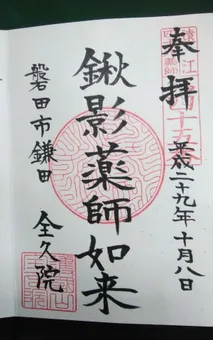 奉拝
平成二十九年十月八日
鍬影薬師如来
磐田市鎌田
全久院